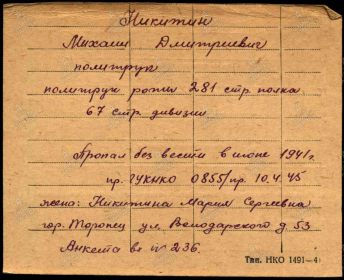 Никитин
Михаил Дмитриевич
политрук
политрук роты 281 стр. полка
67 стр. дивизии
Пропал без вести в июне 1941 г.
пр. ГУКНКО 0855/пр. 10.4.45
жена: Никитина Мария Сергеевна
гор. Торопец ул. Володарского д. 53
Анкета вх № 236.
Тип. НКО 1491—4